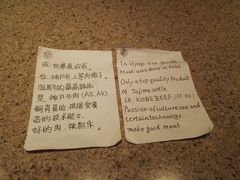 在 兵庫県 成長、
在 神戸市 上等肉做了。
但馬牛的最高級品
是 神戸牛肉 (A5, A4)
飼育員的
高的技术能力、
好的肉、做制作。
In Hyogo-Ken growth
Meat was done in Kobe
Only a top quality Product
of Tajima cattle
is KOBEBEEF (A5 A4)
Passion of culture one and
certain technology
make good meat